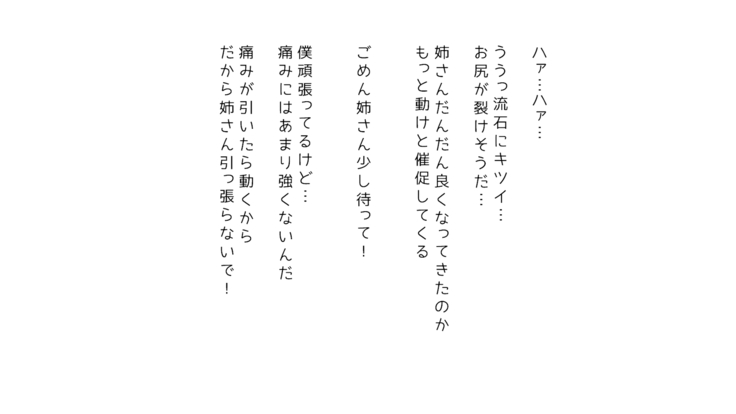 ハァ…ハァ…
ううっ流石にキツイ…
お尻が裂けそうだ…
姉さんだんだん良くなってきたのか
もっと動けと催促してくる
ごめん姉さん少し待って！
僕頑張ってるけど…
痛みにはあまり強くないんだ
痛みが引いたら動くから
だから姉さん引っ張らないで！